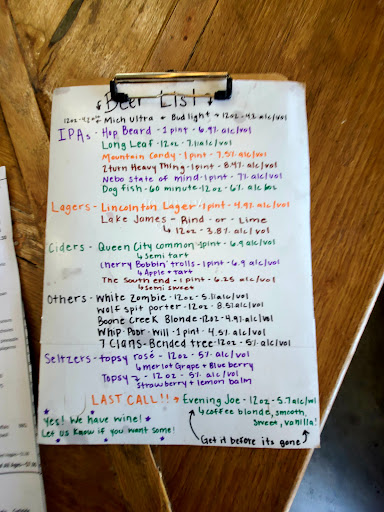 Beer List
12oz-4.2 → Mich ultra ✦ Bud light → 12oz-4.2 alc/vol
IPAs - Hop Beard - 1 pint - 6.9% alc/vol
Long Leaf - 12oz - 7.1 alc/vol
Mountain Candy - 1 pint - 7.5% alc/vol
2turn Heavy Thing - 1 pint - 8.4% alc/vol
Nebo state of mind - 1 pint - 7% alc/vol
Dog fish - 60 minute - 12oz - 6%
Lagers - Lincolnton Lager - 1 pint - 4.9% alc/vol
Lake James - Rind - or - Lime
↳ 12oz - 3.8% alc/vol
Ciders - Queen City common - 1pint - 6.9 alc/vol
↳ Semi tart
Cherry Bobbin' trolls - 1 pint - 6.9 alc/vol
↳ Apple + tart
The South end - 1 pint - 6.25 alc/vol
↳ Semi sweet
Others - White Zombie - 12oz - 5.1 alc/vol
Wolf spit porter - 12oz - 8.5% alc/vol
Boone Creek Blonde - 12oz - 4.9% alc/vol
Whip-Poor-Will - 1 pint - 4.5% alc/vol
7 Clans - Bended tree - 12oz - 5% alc/vol
Seltzers - topsy rosé - 12oz - 5% alc/vol
↳ merlot Grape + Blueberry
Topsy 2 - 12oz - 5% alc/vol
Strawberry + lemon balm
LAST CALL!! → Evening Joe - 12oz - 5.7 alc/vol
↳ coffee blonde, smooth,
sweet, vanilla!
Yes! We have wine!
Let us know if you want some!
Get it before its gone